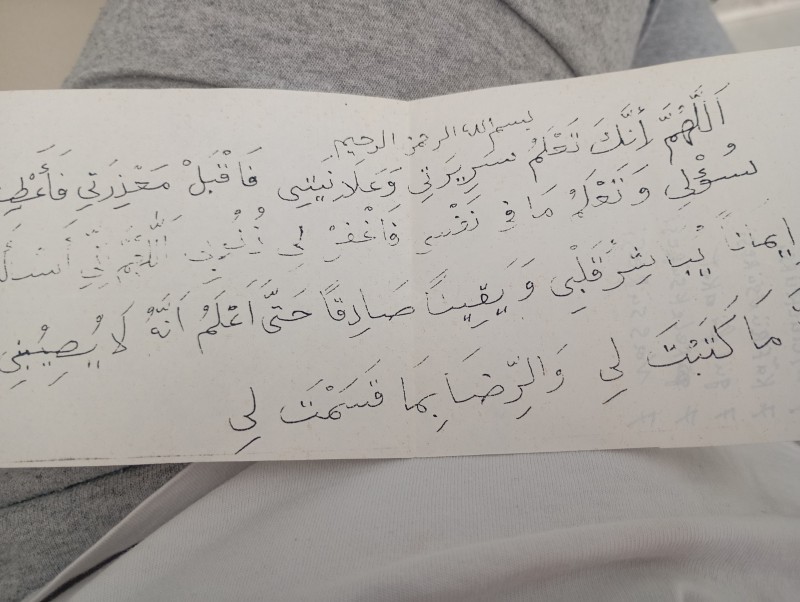 بسم الله الرحمن الرحيم
اَللَّهُمَّ أَنَّكَ تَعْلَمُ سَرِيرَتِي وَعَلَانِيَتِي فَاقْبَلْ مَعْذِرَتِي فَأَعْطِ
سُؤْلِي وَتَعْلَمُ مَا فِي نَفْسِي فَاغْفِرْ لِي ذُنُوبِي اَللَّهُمَّ إِنِّي أَسْأَلُ
إِيمَانًا يُبَاشِرُ قَلْبِي وَيَقِينًا صَادِقًا حَتَّى اَعْلَمُ اَنَّهُ لَا يُصِيْبُنِي
مَا كَتَبْتَ لِي وَالرِّضَا بِمَا قَسَمْتَ لِي